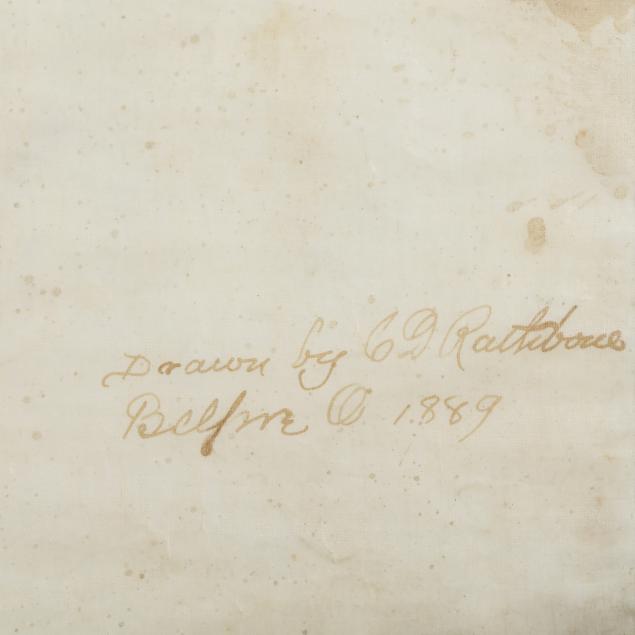 Drawn by C D Rathbone
Belpre O 1889